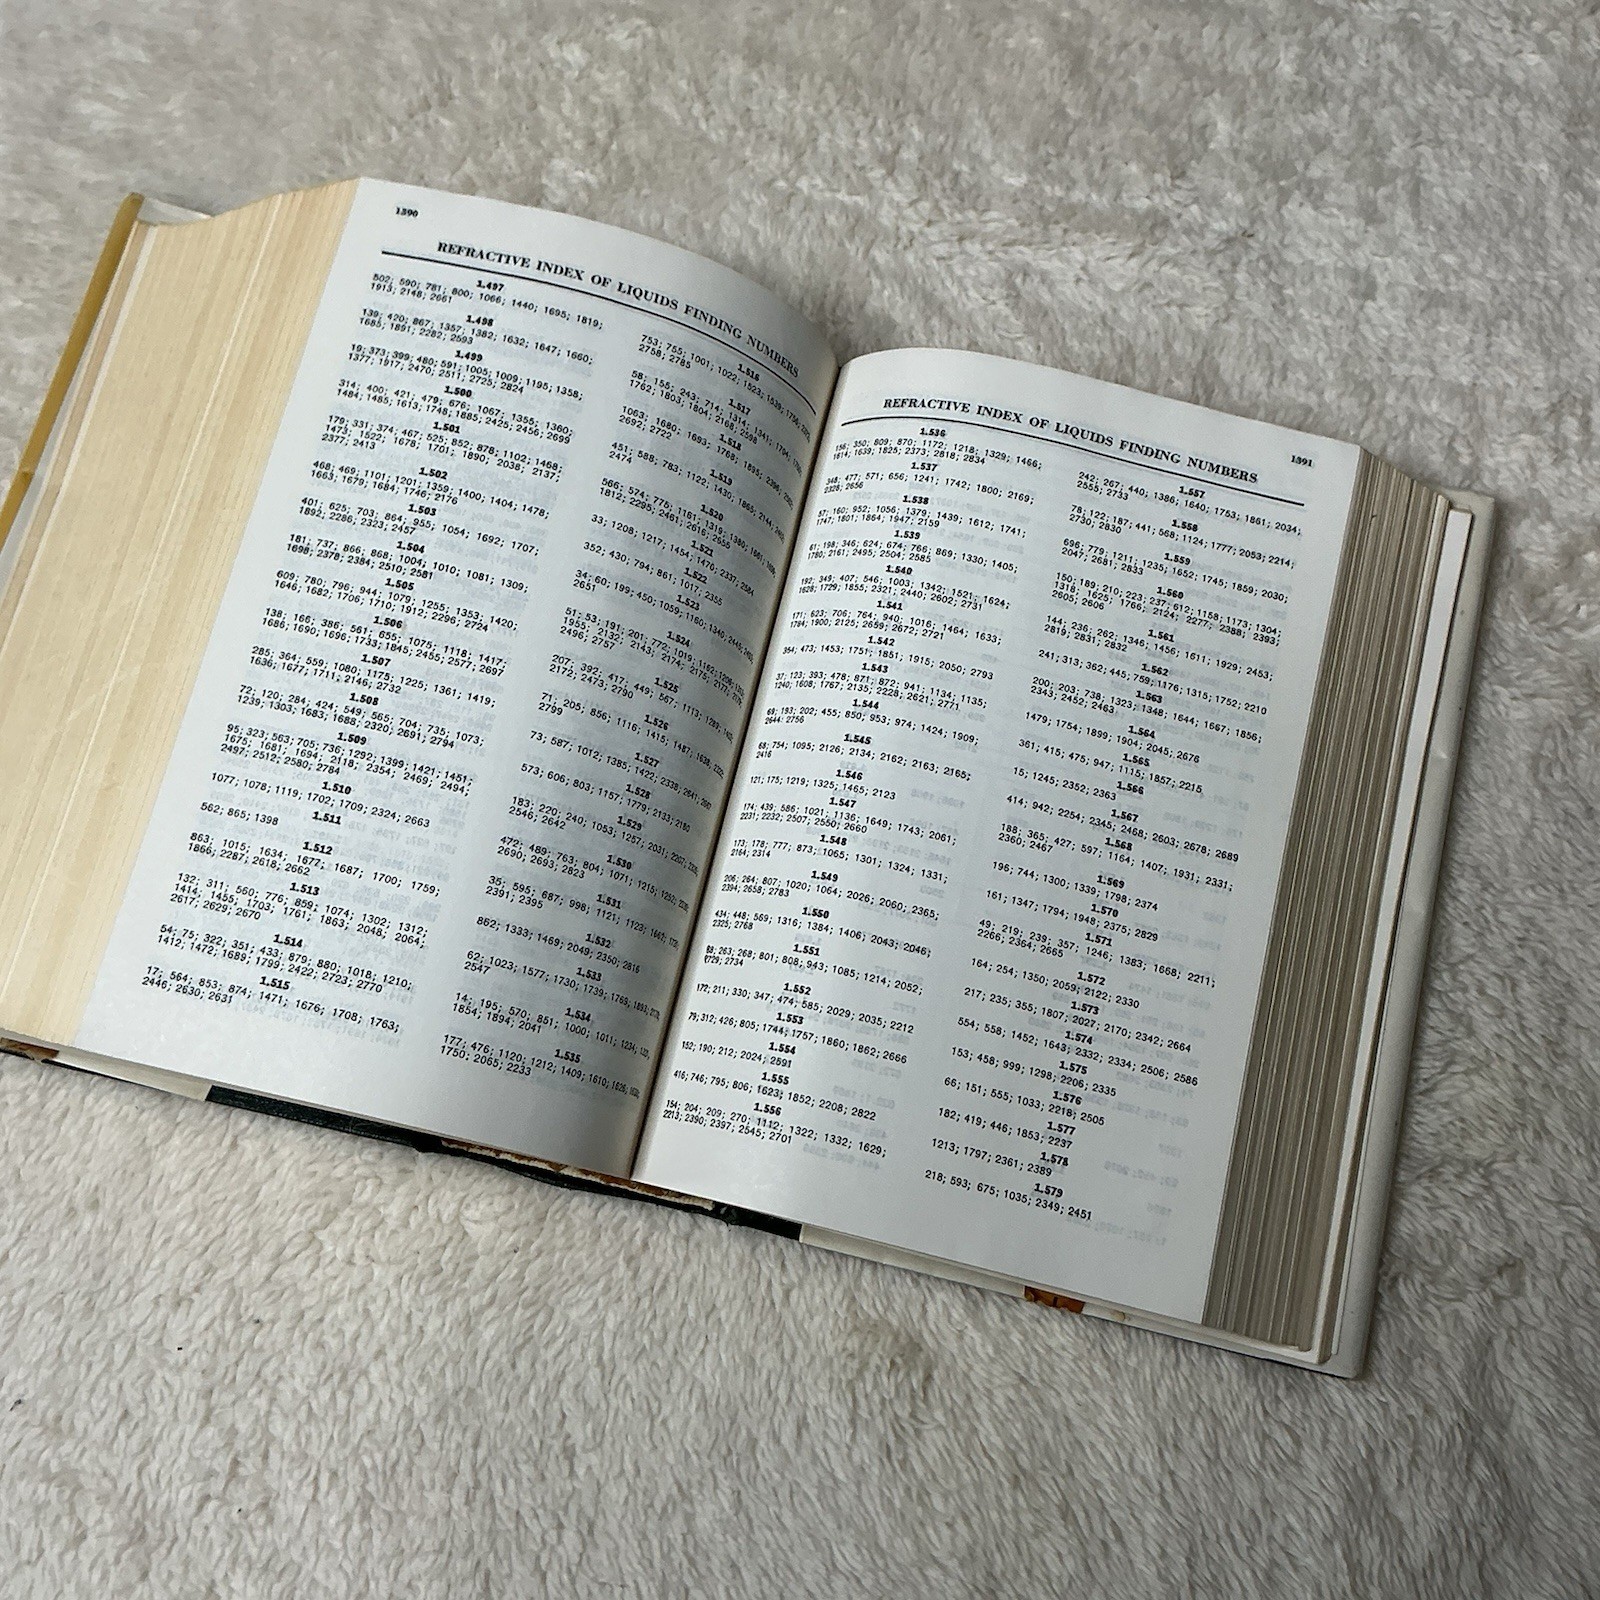 1390
REFRACTIVE INDEX OF LIQUIDS FINDING NUMBERS
1.497
502; 590; 781; 800; 1066; 1440; 1695; 1819;
1913; 2148; 2661
1.498
139; 420; 867; 1357; 1382; 1632; 1647; 1660;
1685; 1891; 2282; 2593
1.499
19; 373; 399; 480; 591; 1005; 1009; 1195; 1358;
1377; 1917; 2470; 2511; 2725; 2824
1.500
314; 400; 421; 479; 676; 1067; 1355; 1360;
1484; 1485; 1613; 1748; 1885; 2425; 2456; 2699
1.501
179; 331; 374; 467; 525; 852; 878; 1102; 1468;
1473; 1522; 1678; 1701; 1890; 2038; 2137;
2377; 2413
1.502
468; 469; 1101; 1201; 1359; 1400; 1404; 1478;
1663; 1679; 1684; 1746; 2176
1.503
401; 625; 703; 864; 955; 1054; 1692; 1707;
1892; 2286; 2323; 2457
1.504
181; 737; 866; 868; 1004; 1010; 1081; 1309;
1698; 2378; 2384; 2510; 2581
1.505
609; 780; 796; 944; 1079; 1255; 1353; 1420;
1646; 1682; 1706; 1710; 1912; 2296; 2724
1.506
138; 166; 386; 561; 655; 1075; 1118; 1417;
1686; 1690; 1696; 1733; 1845; 2455; 2577; 2697
1.507
285; 364; 559; 1080; 1175; 1225; 1361; 1419;
1636; 1677; 1711; 2146; 2732
1.508
72; 120; 284; 424; 549; 565; 704; 735; 1073;
1239; 1303; 1683; 1688; 2320; 2691; 2794
1.509
95; 323; 563; 705; 736; 1292; 1399; 1421; 1451;
1675; 1681; 1694; 2118; 2354; 2469; 2494;
2497; 2512; 2580; 2784
1.510
1077; 1078; 1119; 1702; 1709; 2324; 2663
1.511
562; 865; 1398
1.512
863; 1015; 1634; 1677; 1687; 1700; 1759;
1866; 2287; 2618; 2662
1.513
132; 311; 560; 776; 859; 1074; 1302; 1312;
1414; 1455; 1703; 1761; 1863; 2048; 2064;
2617; 2629; 2670
1.514
54; 75; 322; 351; 433; 879; 880; 1018; 1210;
1412; 1472; 1689; 1799; 2422; 2723; 2770
1.515
17; 564; 853; 874; 1471; 1676; 1708; 1763;
2446; 2630; 2631
1.516
753; 755; 1001; 1022; 1523; 1539; 1756;
2758; 2785
1.517
58; 155; 243; 714; 1314; 1341;
1762; 1803; 1804; 2168; 2598
1.518
1063; 1680; 1693; 1768; 1895;
2692; 2722
1.519
451; 588; 783; 1122; 1430; 1865; 2144;
2474
1.520
566; 574; 775; 1161; 1319; 1380;
1812; 2295; 2461; 2616; 2655
1.521
33; 1208; 1217; 1454; 1470; 2337; 2584
1.522
352; 430; 794; 861; 1017; 2355
1.523
34; 60; 199; 450; 1059; 1160; 1340; 2445;
2651
1.524
51; 53; 191; 201; 772; 1019; 1162;
1955; 2132; 2143; 2174; 2175; 2177;
2496; 2757
1.525
207; 392; 417; 449; 567; 1113; 1289;
2172; 2473; 2790
1.526
71; 205; 856; 1116; 1415; 1487; 1638;
2799
1.527
73; 587; 1012; 1385; 1422; 2338; 2641;
1.528
573; 606; 803; 1157; 1779; 2133; 2180
1.529
183; 220; 240; 1053; 1257; 2031; 2207;
2546; 2642
1.530
472; 489; 763; 804; 1071; 1215; 1252;
2690; 2693; 2823
1.531
35; 595; 687; 998; 1121; 1123; 1667;
2391; 2395
1.532
862; 1333; 1469; 2049; 2350; 2615
1.533
62; 1023; 1577; 1730; 1739; 1769; 1893;
2547
1.534
14; 195; 570; 851; 1000; 1011; 1234;
1854; 1894; 2041
1.535
177; 476; 1120; 1212; 1409; 1610; 1626;
1750; 2065; 2233
1391
REFRACTIVE INDEX OF LIQUIDS FINDING NUMBERS
1.536
156; 350; 809; 870; 1172; 1218; 1329; 1466;
1614; 1639; 1825; 2373; 2818; 2834
1.537
348; 477; 571; 656; 1241; 1742; 1800; 2169;
2328; 2656
1.538
57; 160; 952; 1056; 1379; 1439; 1612; 1741;
1747; 1801; 1864; 1947; 2159
1.539
61; 198; 346; 624; 674; 766; 869; 1330; 1405;
1780; 2161; 2495; 2504; 2585
1.540
192; 349; 407; 546; 1003; 1342; 1521; 1624;
1628; 1729; 1855; 2321; 2440; 2602; 2731
1.541
171; 623; 706; 764; 940; 1016; 1464; 1633;
1784; 1900; 2125; 2659; 2672; 2721
1.542
354; 473; 1453; 1751; 1851; 1915; 2050; 2793
1.543
37; 123; 393; 478; 871; 872; 941; 1134; 1135;
1240; 1608; 1767; 2135; 2228; 2621; 2771
1.544
69; 193; 202; 455; 850; 953; 974; 1424; 1909;
2644; 2756
1.545
68; 754; 1095; 2126; 2134; 2162; 2163; 2165;
2416
1.546
121; 175; 1219; 1325; 1465; 2123
1.547
174; 439; 586; 1021; 1136; 1649; 1743; 2061;
2231; 2232; 2507; 2550; 2660
1.548
173; 178; 777; 873; 1065; 1301; 1324; 1331;
2164; 2314
1.549
206; 264; 807; 1020; 1064; 2026; 2060; 2365;
2394; 2658; 2783
1.550
434; 448; 569; 1316; 1384; 1406; 2043; 2046;
2325; 2768
1.551
88; 263; 268; 801; 808; 943; 1085; 1214; 2052;
2734
1.552
172; 211; 330; 347; 474; 585; 2029; 2035; 2212
1.553
79; 312; 426; 805; 1744; 1757; 1860; 1862; 2666
1.554
152; 190; 212; 2024; 2591
1.555
416; 746; 795; 806; 1623; 1852; 2208; 2822
1.556
154; 204; 209; 270; 1112; 1322; 1332; 1629;
2213; 2390; 2397; 2545; 2701
1.557
242; 267; 440; 1386; 1640; 1753; 1861; 2034;
2555; 2733
1.558
78; 122; 187; 441; 568; 1124; 1777; 2053; 2214;
2730; 2830
1.559
696; 779; 1211; 1235; 1652; 1745; 1859; 2030;
2047; 2681; 2833
1.560
150; 189; 210; 223; 237; 612; 1158; 1173; 1304;
1318; 1625; 1766; 2124; 2277; 2388; 2393;
2605; 2606
1.561
144; 236; 262; 1346; 1456; 1611; 1929; 2453;
2819; 2831; 2832
1.562
241; 313; 362; 445; 759; 1176; 1315; 1752; 2210
1.563
200; 203; 738; 1323; 1348; 1644; 1667; 1856;
2343; 2452; 2463
1.564
1479; 1754; 1899; 1904; 2045; 2676
1.565
361; 415; 475; 947; 1115; 1857; 2215
1.566
15; 1245; 2352; 2363
1.567
414; 942; 2254; 2345; 2468; 2603; 2678; 2689
1.568
188; 365; 427; 597; 1164; 1407; 1931; 2331;
2360; 2467
1.569
196; 744; 1300; 1339; 1798; 2374
1.570
161; 1347; 1794; 1948; 2375; 2829
1.571
49; 219; 239; 357; 1246; 1383; 1668; 2211;
2266; 2364; 2665
1.572
164; 254; 1350; 2059; 2122; 2330
1.573
217; 235; 355; 1807; 2027; 2170; 2342; 2664
1.574
554; 558; 1452; 1643; 2332; 2334; 2506; 2586
1.575
153; 458; 999; 1298; 2206; 2335
1.576
66; 151; 555; 1033; 2218; 2505
1.577
182; 419; 446; 1853; 2237
1.578
1213; 1797; 2361; 2389
1.579
218; 593; 675; 1035; 2349; 2451